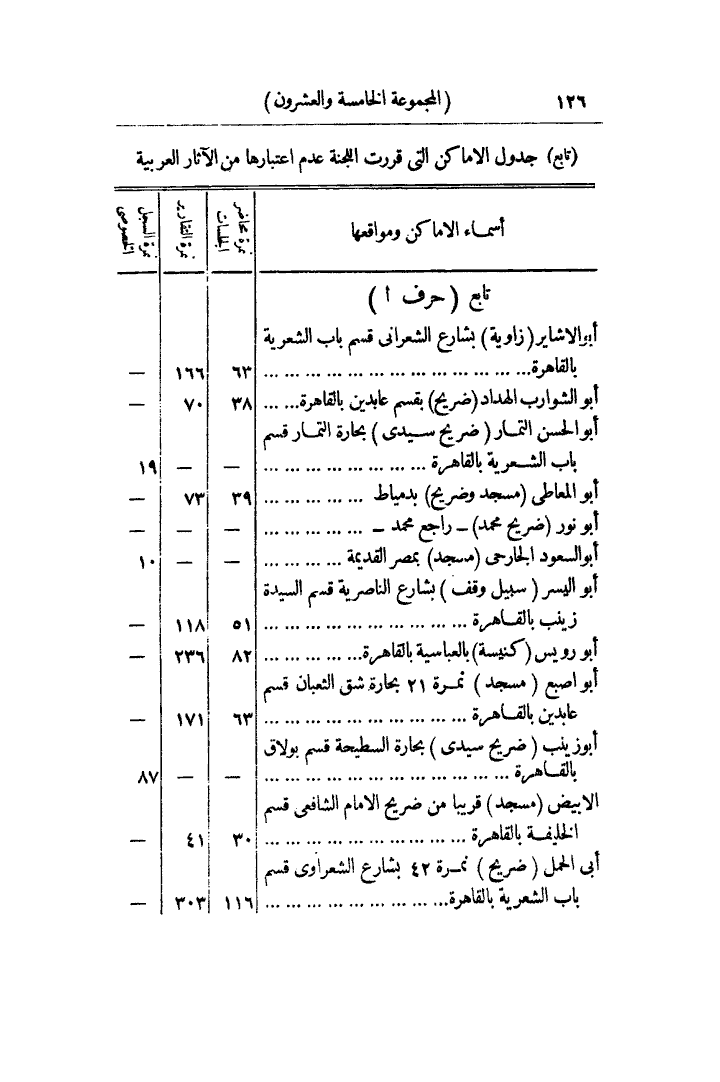 ١٢٦ (المجموعة الخامسة والعشرون)
(تابع) جدول الاماكن التى قررت اللجنة عدم اعتبارها من الآثار العربية
أسماء الاماكن ومواقعها | نمرة محاضر الجلسات | نمرة التقارير | نمرة السجل الخصوصى
تابع (حرف ا)
أبو الاشاير (زاوية) بشارع الشعرانى قسم باب الشعرية
بالقاهرة... ... ... ... ... ... ... ... ... ... ... ... ... ٦٣ ١٦٦ —
أبو الشوارب الهداد (ضريح) بقسم عابدين بالقاهرة... ... ٣٨ ٧٠ —
أبو الحسن التمار (ضريح سيدى) بحارة التمار قسم
باب الشعرية بالقاهرة ... ... ... ... ... ... ... ... — — ١٩
أبو المعاطى (مسجد وضريح) بدمياط ... ... ... ... ... ٣٩ ٧٣ —
أبو نور (ضريح محمد) ـ راجع محمد ـ ... ... ... ... ... — — —
أبو السعود الجارحى (مسجد) بمصر القديمة ... ... ... ... — — ١٠
أبو اليسر (سبيل وقف) بشارع الناصرية قسم السيدة
زينب بالقاهرة ... ... ... ... ... ... ... ... ... ... ٥١ ١١٨ —
أبو رويس (كنيسة) بالعباسية بالقاهرة... ... ... ... ... ٨٢ ٢٣٦ —
أبو اصبع (مسجد) نمرة ٢١ بحارة شق الثعبان قسم
عابدين بالقاهرة ... ... ... ... ... ... ... ... ... ... ٦٣ ١٧١ —
أبو زينب (ضريح سيدى) بحارة السطيحة قسم بولاق
بالقاهرة ... ... ... ... ... ... ... ... ... ... ... ... — — ٨٧
الابيض (مسجد) قريبا من ضريح الامام الشافعى قسم
الخليفة بالقاهرة ... ... ... ... ... ... ... ... ... ... ٣٠ ٤١ —
أبى الحمل (ضريح) نمرة ٤٢ بشارع الشعراوى قسم
باب الشعرية بالقاهرة... ... ... ... ... ... ... ... ... ١١٦ ٣٠٣ —